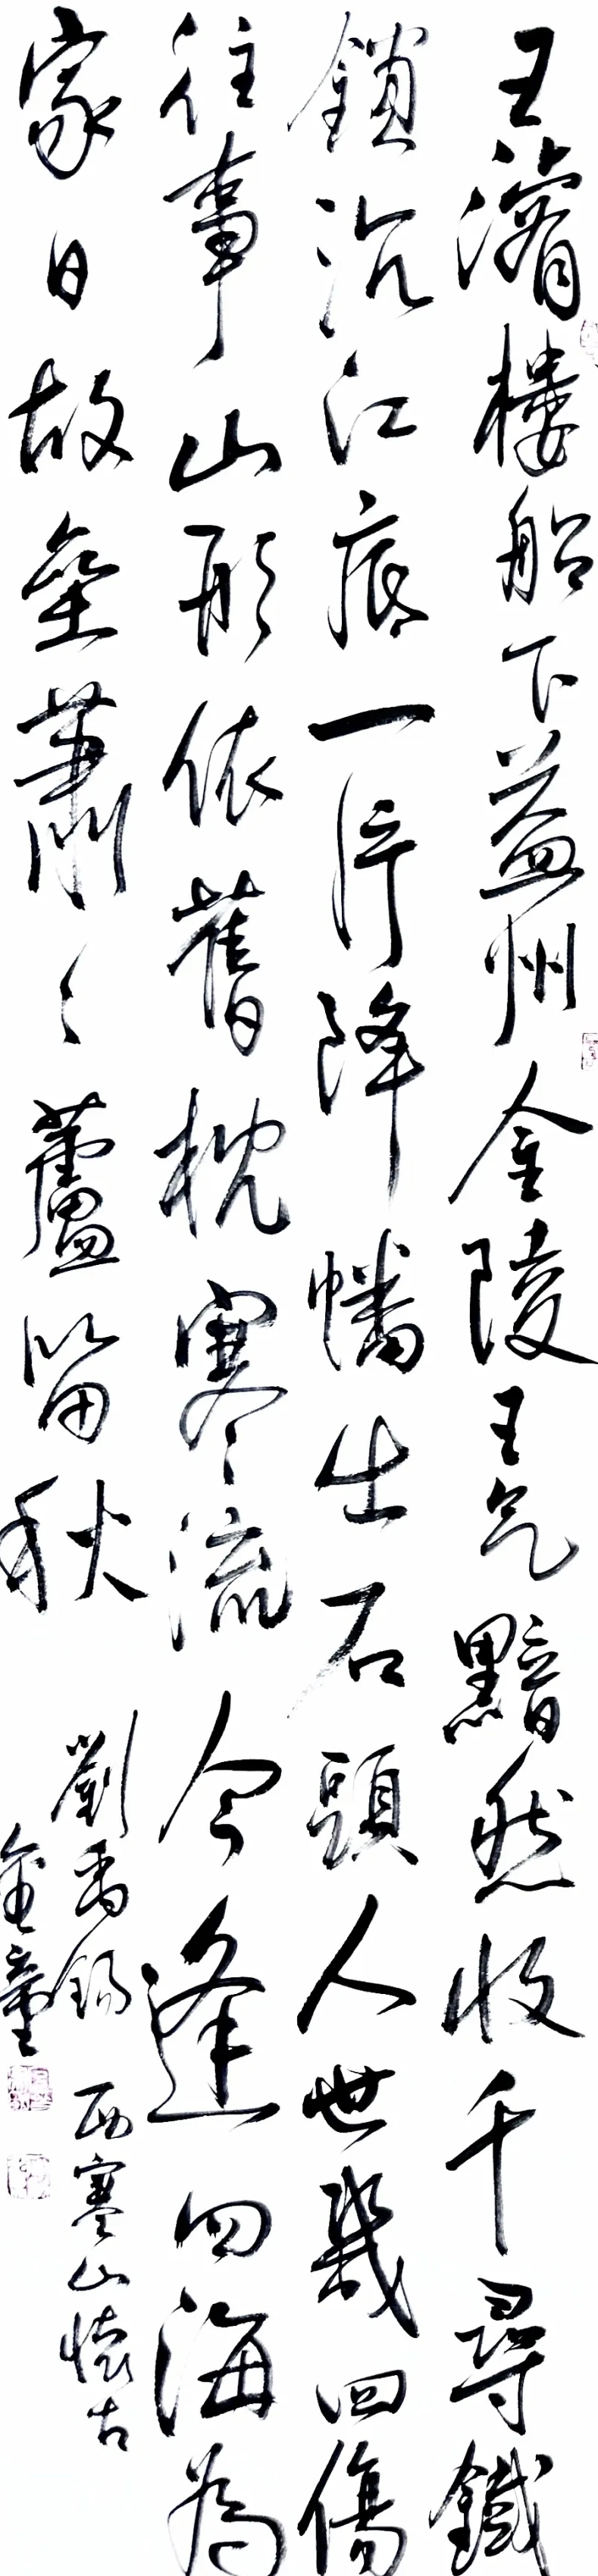 王濬樓船下益州金陵王气黯然收千尋鐵
鎖沉江底一片降幡出石頭人世幾回傷
往事山形依舊枕寒流今逢四海為
家日故壘蕭〻蘆笛秋
劉禹錫 西塞山懷古
金童